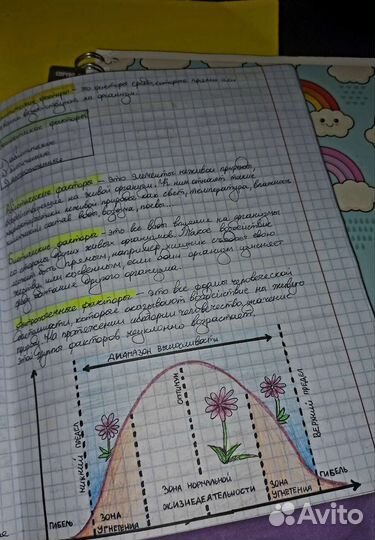 факторы – это факторы среды, которые прямо или
на организм.
факторы
1) абиотические
2) биотические
3) антропогенные
Абиотические факторы – это элементы неживой природы,
на живой организм. К ним относят такие
неживой природы как свет, температура, влажность
состав воды, воздуха, почвы...
Биотические факторы – это все виды влияния на организмы
со стороны других живых организмов. Такое воздействие
может быть прямым, например хищник съедает свою
жертву, или косвенным, если один организм изменяет
обитания другого организма.
Антропогенные факторы – это все формы человеческой
деятельности, которые оказывают воздействие на живую
природу. На протяжении истории человечества значение
этой группы факторов неуклонно возрастает.
ДИАПАЗОН ВЫНОСЛИВОСТИ
НИЖНИЙ ПРЕДЕЛ
ОПТИМУМ
ВЕРХНИЙ ПРЕДЕЛ
ГИБЕЛЬ
ЗОНА
УГНЕТЕНИЯ
ЗОНА НОРМАЛЬНОЙ
ЖИЗНЕДЕЯТЕЛЬНОСТИ
ЗОНА
УГНЕТЕНИЯ
ГИБЕЛЬ
Avito